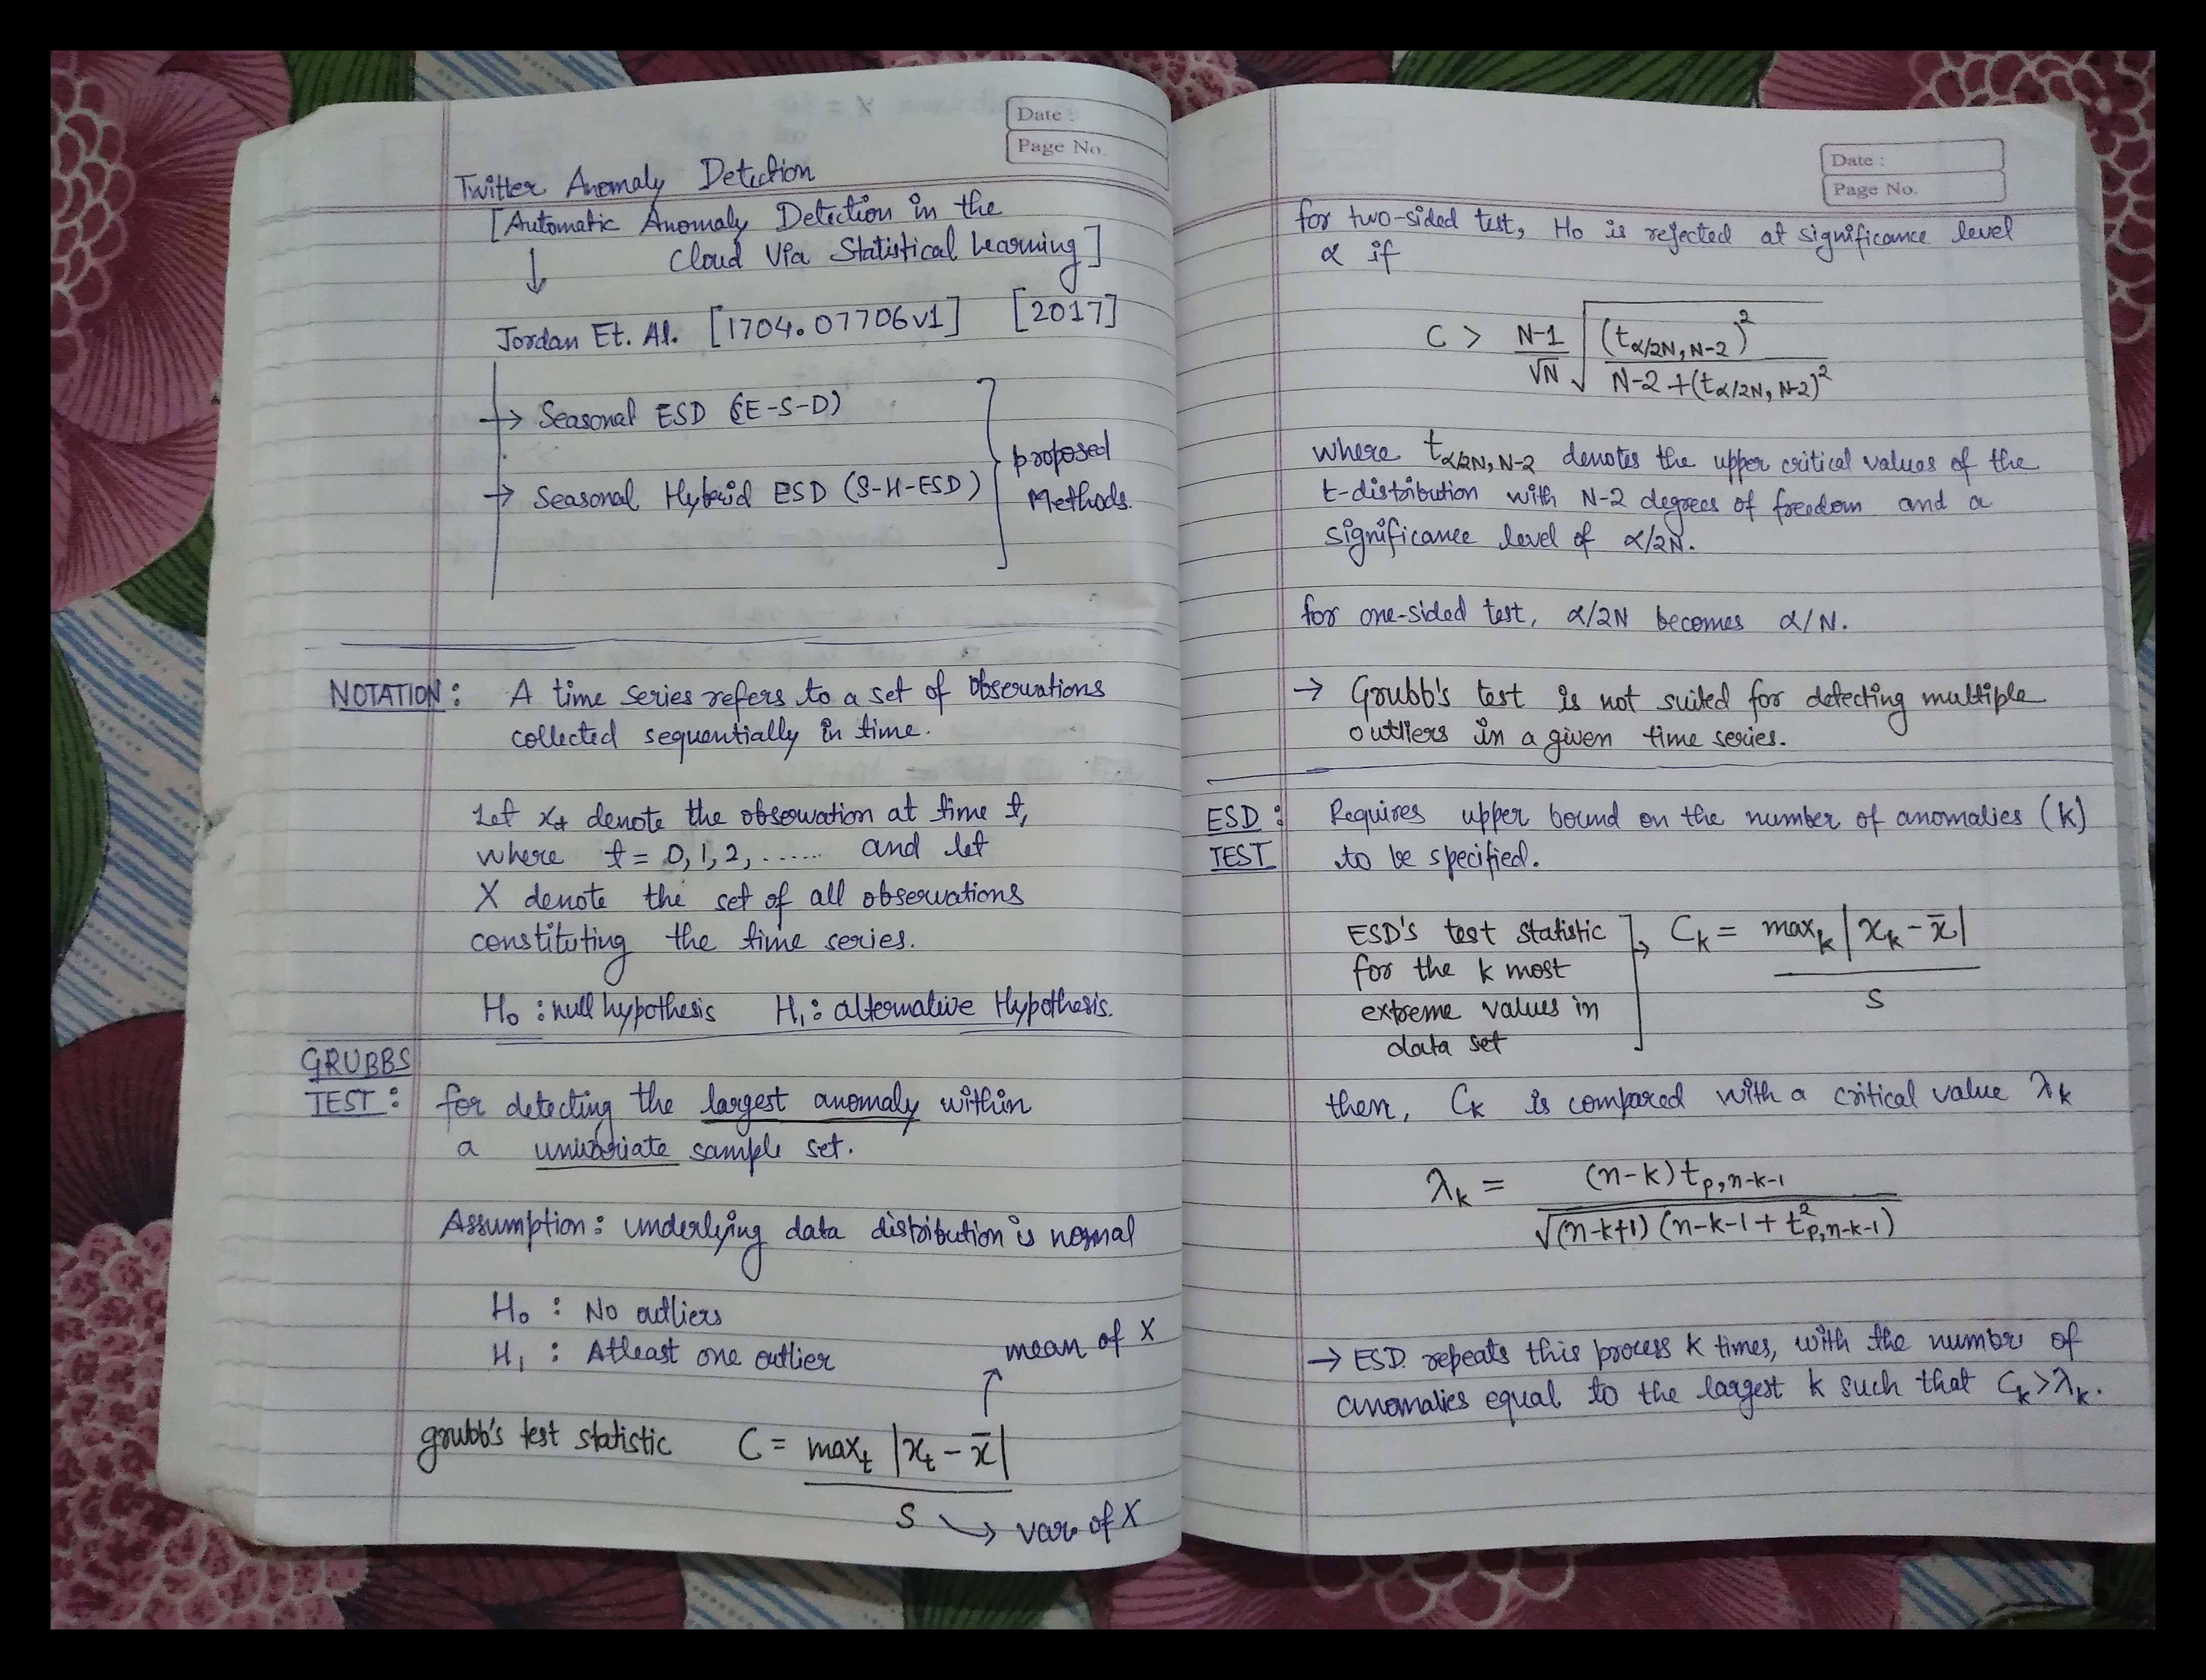 Date :
Page No.
Twitter Anomaly Detection
[Automatic Anomaly Detection in the
Cloud Via Statistical Learning]
↓
Jordan Et. Al. [1704.07706v1] [2017]
→ Seasonal ESD (S-E-S-D)
→ Seasonal Hybrid ESD (S-H-ESD)
proposed
Methods.
NOTATION : A time series refers to a set of observations
collected sequentially in time.
Let xt denote the observation at time t,
where t = 0, 1, 2, ...... and let
X denote the set of all observations
constituting the time series.
H0 : null hypothesis H1 : alternative Hypothesis.
GRUBBS
TEST : for detecting the largest anomaly within
a univariate sample set.
Assumption : underlying data distribution is normal
H0 : No outliers
H1 : Atleast one outlier
mean of X
grubb's test statistic C = maxt |xt - x̄|
S → var of X
Date :
Page No.
for two-sided test, H0 is rejected at significance level
α if
C > N-1/√N √((tα/2N, N-2)² / N-2 + (tα/2N, N-2)²)
where tα/2N, N-2 denotes the upper critical values of the
t-distribution with N-2 degrees of freedom and a
significance level of α/2N.
for one-sided test, α/2N becomes α/N.
→ Grubb's test is not suited for detecting multiple
outliers in a given time series.
ESD : Requires upper bound on the number of anomalies (k)
TEST to be specified.
ESD's test statistic → Ck = maxk |xk - x̄|
for the k most
extreme values in S
data set
then, Ck is compared with a critical value λk
λk = (n-k) tp,n-k-1
√(n-k+1) (n-k-1 + t²p,n-k-1)
→ ESD repeats this process k times, with the number of
anomalies equal to the largest k such that Ck > λk.